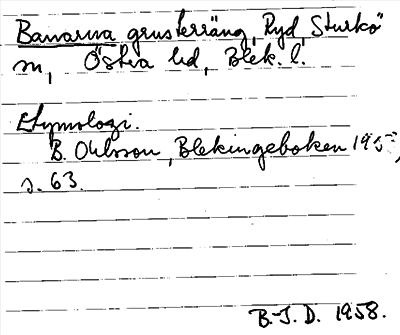 Banarna grusterräng, Ryd, Sturkö
sn, Östra hd, Blek. l.
Etymologi.
B. Ohlsson, Blekingeboken
s. 63.
B.-I. D. 1958.